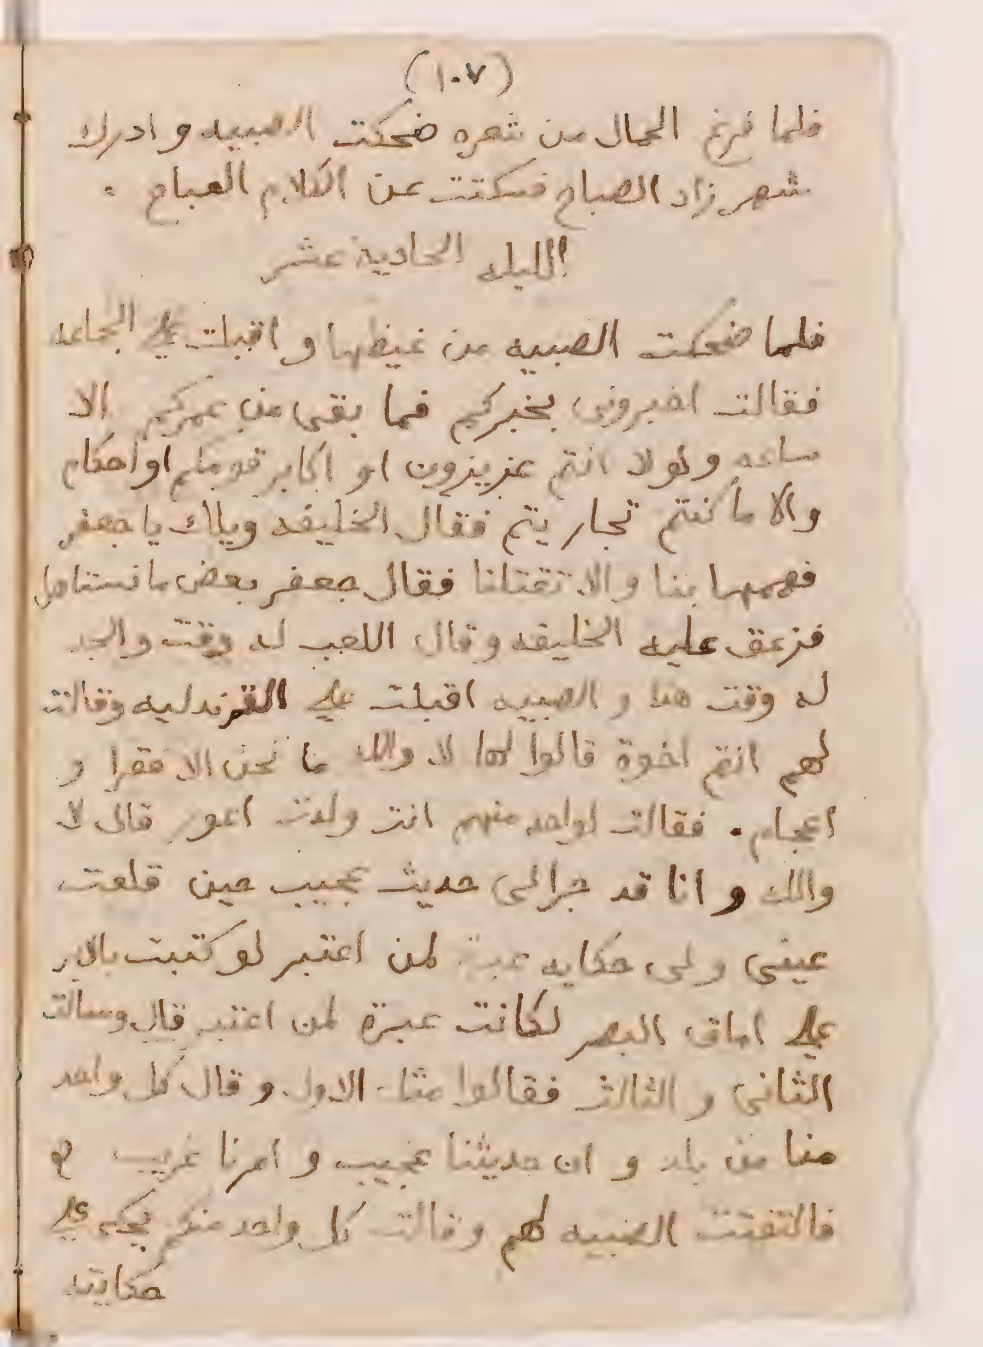 (١٠٧)
فلما فرغ الحمال من شعره ضحكت الصبيه و ادرك
شهر زاد الصباح فسكتت عن الكلام المباح .
الليله الحادية عشر
فلما ضحكت الصبيه من غيظها و اقبلت علي الجماعه
فقالت اخبرونى بخبركم فما بقى من عمركم الا
ساعه ولولا انتم عزيزون او اكابر قومكم او احكام
والا ما كنتم تجاريتم فقال الخليفه ويلك يا جعفر
فهمها بنا والا تقتلنا فقال جعفر بعض ما نستاهل
فزعق عليه الخليفه وقال اللعب له وقت والجد
له وقت هذا و الصبيه اقبلت علي القرندليه وقالت
لهم انتم اخوة قالوا لها لا والله ما نحن الا فقرا و
اعجام . فقالت لواحد منهم انت ولدت اعور قال لا
والله و انا قد جرا لى حديث عجيب حين قلعت
عينى ولى حكايه عبرة لمن اعتبر لو كتبت بالابر
علي اماق البصر لكانت عبرة لمن اعتبر قال وسالت
الثانى و الثالث فقالوا مثل الاول و قال كل واحد
منا من بلد و ان حديثنا عجيب و امرنا غريب
فالتفتت الصبيه لهم وقالت كل واحد منكم يحكى لي
حكايته